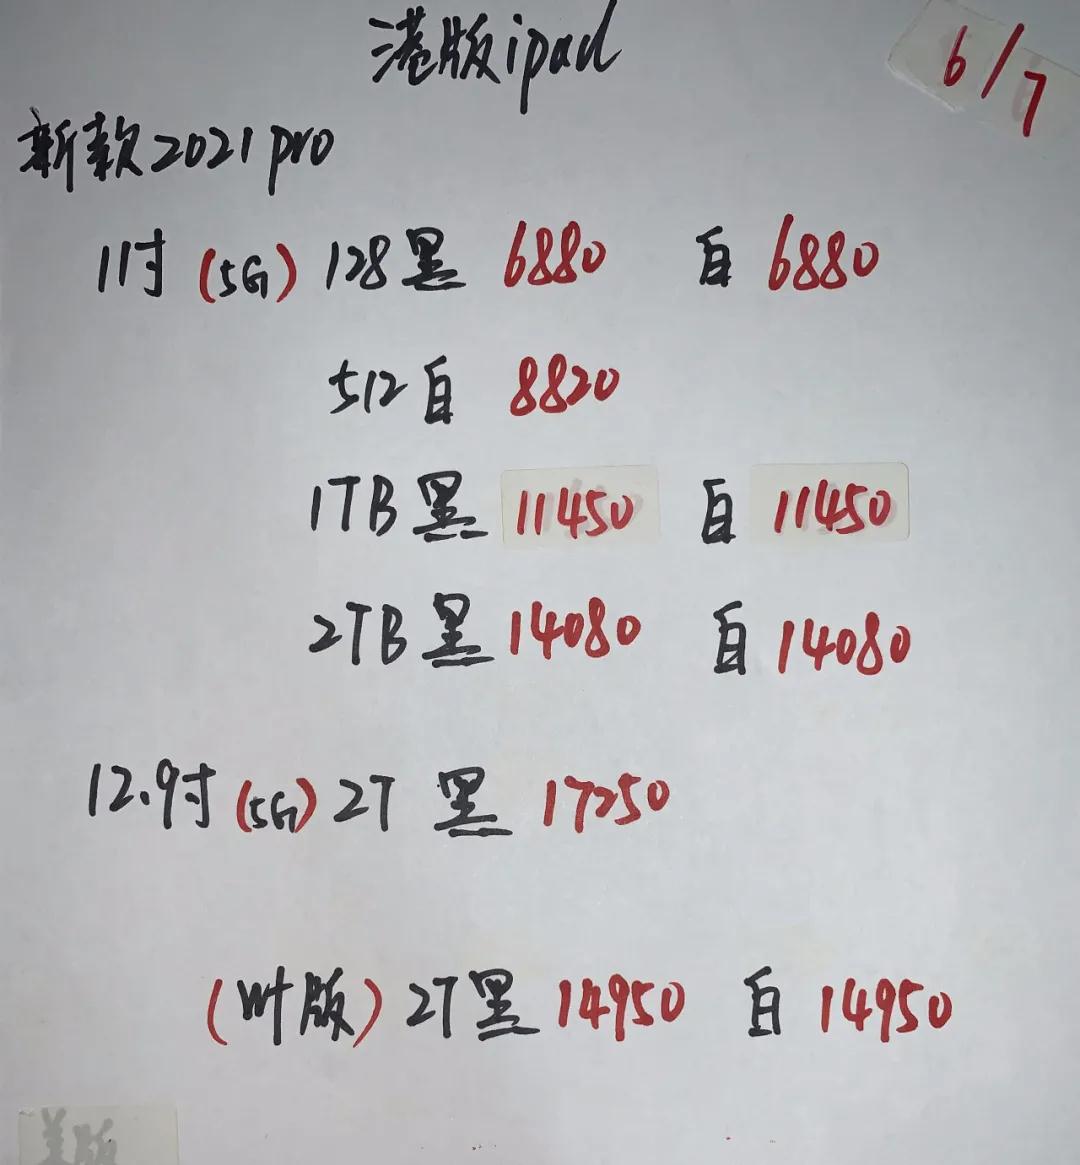 港版ipad
6/7
新款2021pro
11寸(5G)128黑 6880 白 6880
512白 8820
1TB黑 11450 白 11450
2TB黑 14080 白 14080
12.9寸(5G)2T 黑 17250
(叶版)2T黑 14950 白 14950
美版